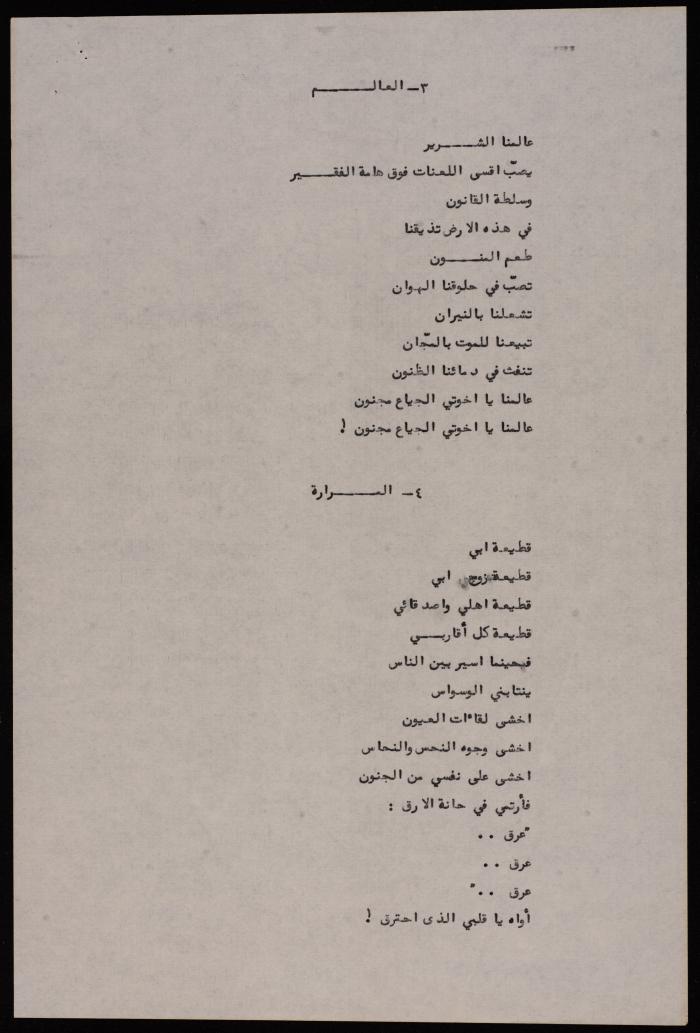 ٣ـ العالـــــــم
عالمنا الشـــــرير
يصبّ اقسى اللعنات فوق هامة الفقـــــير
وسلطة القانون
في هذه الارض تذيقنا
طعم المنـــــون
تصبّ في حلوقنا الهوان
تشعلنا بالنيران
تبيعنا للموت بالمجّان
تنفث في دمائنا الظنون
عالمنا يا اخوتي الجياع مجنون
عالمنا يا اخوتي الجياع مجنون !
٤ـ المـــــــرارة
قطيعة ابي
قطيعة زوجي ابي
قطيعة اهلي واصدقائي
قطيعة كل أقاربـــــي
فحينما اسير بين الناس
ينتابني الوسواس
اخشى لقاءات العيون
اخشى وجوه النحس والنحاس
اخشى على نفسي من الجنون
فأرتمي في حانة الارق :
"عرق ..
عرق ..
عرق .."
أواه يا قلبي الذى احترق !